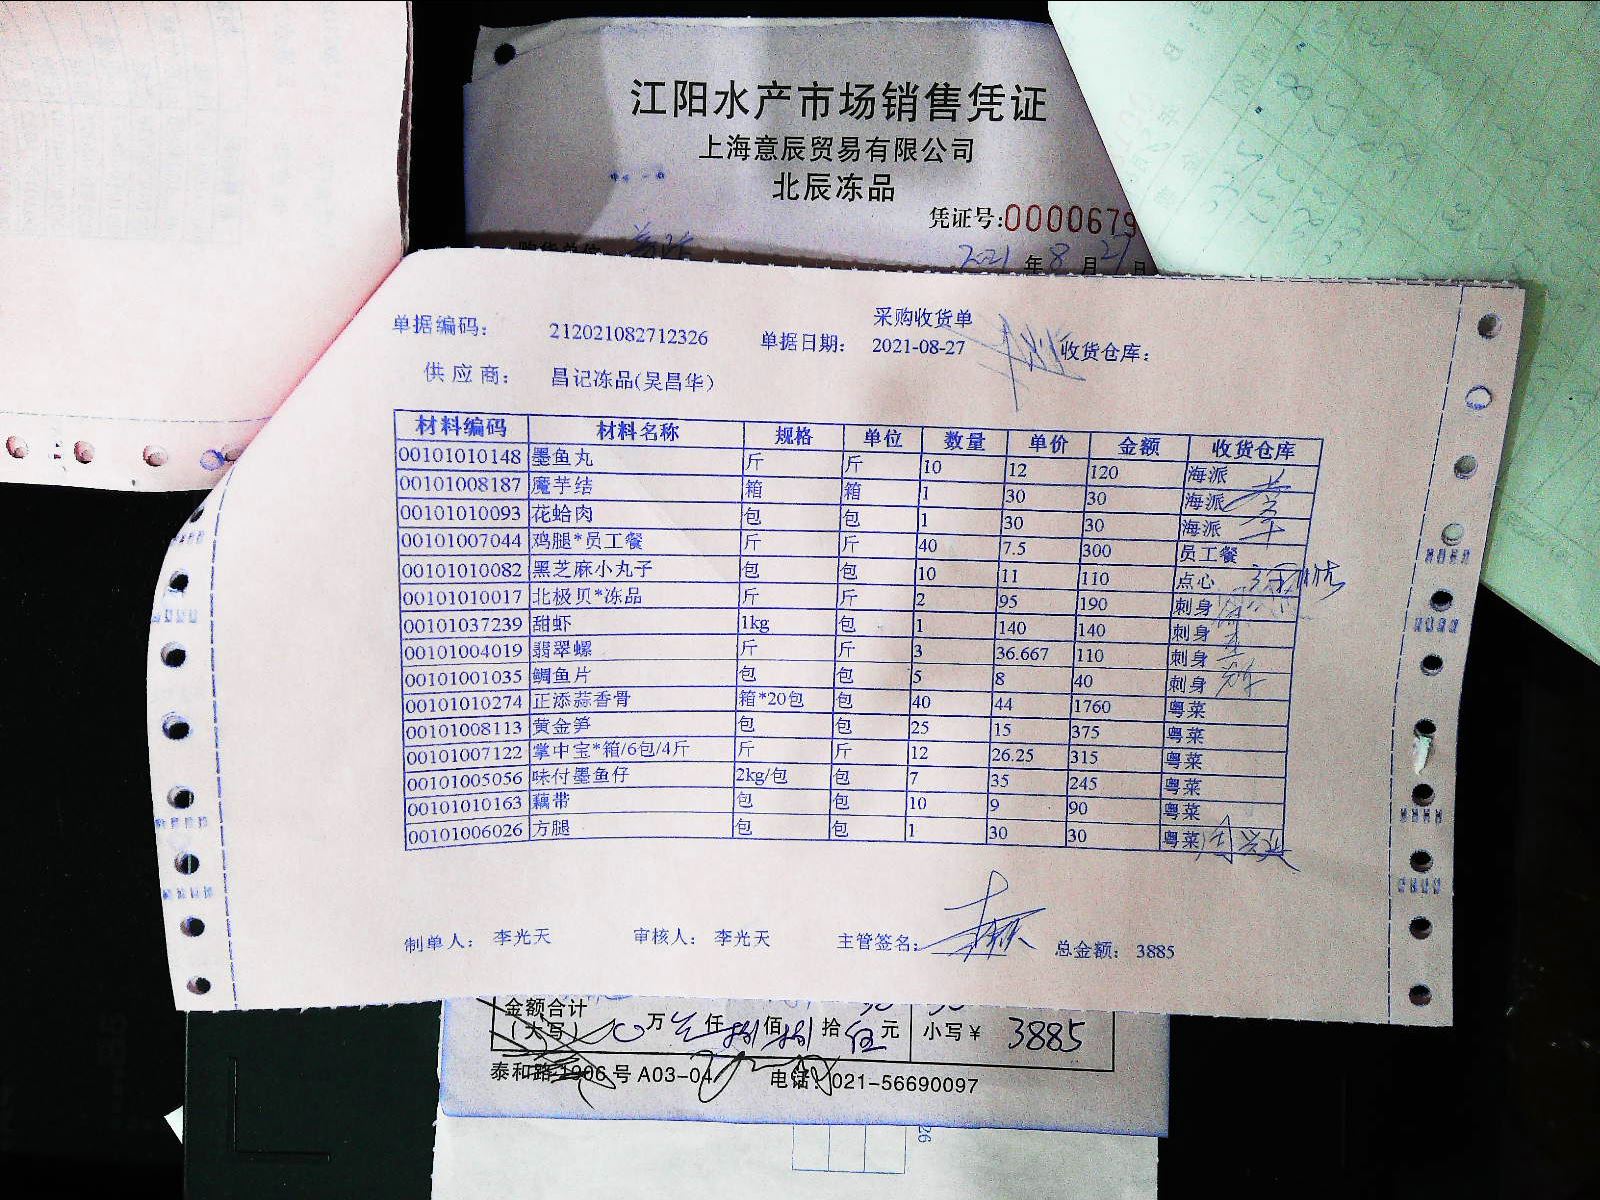 江阳水产市场销售凭证
上海意辰贸易有限公司
北辰冻品
凭证号:0000679
2021 年 8 月 27 日
采购收货单
单据编码： 212021082712326 单据日期： 2021-08-27 收货仓库：
供应商： 昌记冻品(吴昌华)
材料编码 材料名称 规格 单位 数量 单价 金额 收货仓库
00101010148 墨鱼丸 斤 斤 10 12 120 海派
00101008187 魔芋结 箱 箱 1 30 30 海派
00101010093 花蛤肉 包 包 1 30 30 海派
00101007044 鸡腿*员工餐 斤 斤 40 7.5 300 员工餐
00101010082 黑芝麻小丸子 包 包 10 11 110 点心
00101010017 北极贝*冻品 斤 斤 2 95 190 刺身
00101037239 甜虾 1kg 包 1 140 140 刺身
00101004019 翡翠螺 斤 斤 3 36.667 110 刺身
00101001035 鲷鱼片 包 包 5 8 40 刺身
00101010274 正添蒜香骨 箱*20包 包 40 44 1760 粤菜
00101008113 黄金笋 包 包 25 15 375 粤菜
00101007122 掌中宝*箱/6包/4斤 斤 斤 12 26.25 315 粤菜
00101005056 味付墨鱼仔 2kg/包 包 7 35 245 粤菜
00101010163 藕带 包 包 10 9 90 粤菜
00101006026 方腿 包 包 1 30 30 粤菜
制单人： 李光天 审核人： 李光天 主管签名： 总金额： 3885
金额合计
(大写) 万 仟 捌 佰 捌 拾 伍 元 小写¥ 3885
泰和路1906号 A03-04 电话：021-56690097